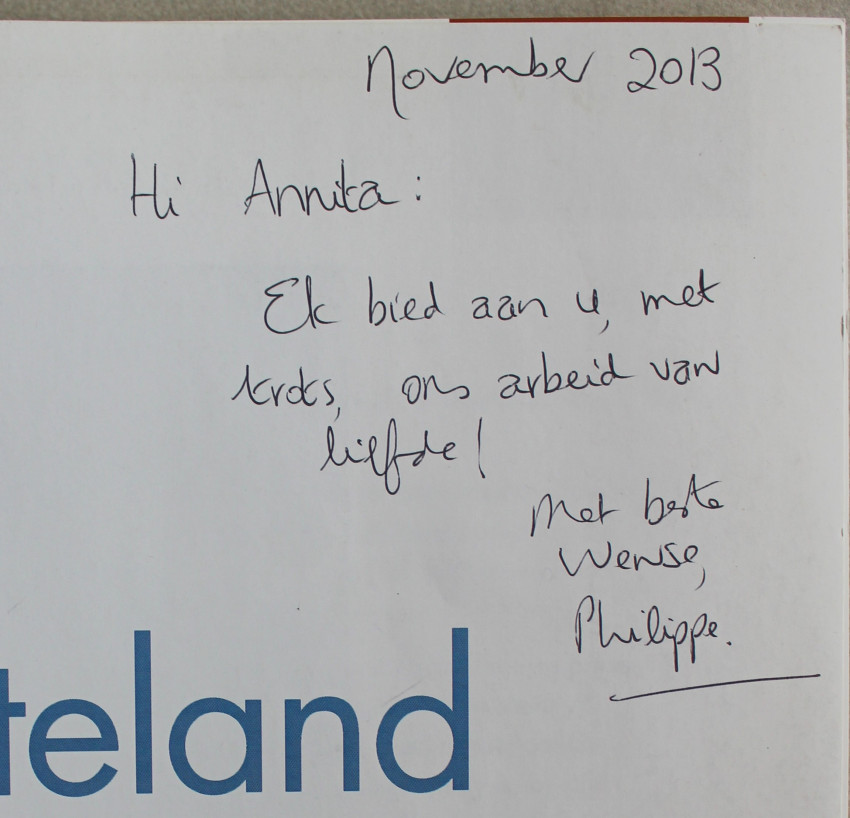 November 2013
Hi Annita:
Ek bied aan u, met
trots, ons arbeid van
liefde!
Met beste
Wense,
Philippe.
teland